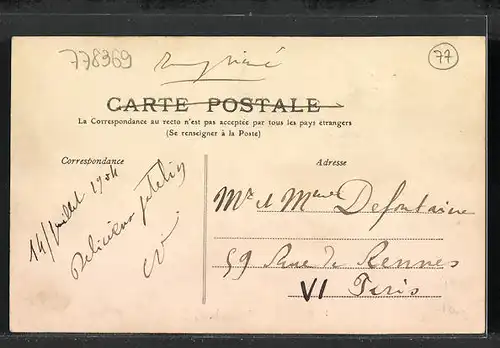 778369
77
CARTE POSTALE
La Correspondance au recto n'est pas acceptée par tous les pays étrangers
(Se renseigner à la Poste)
Correspondance
Adresse
14/Juillet 1904
Mr et Mme Defontaine
59 Rue de Rennes
VI Paris